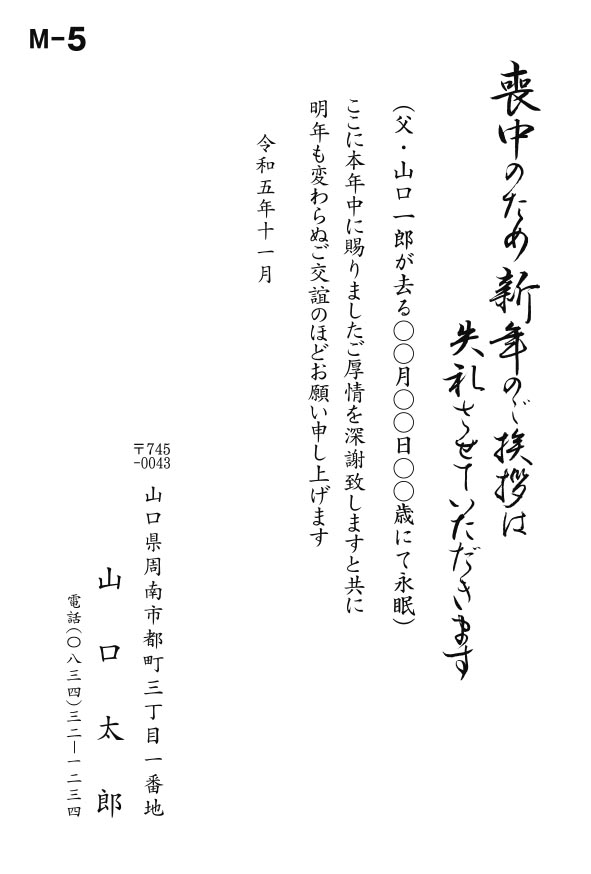 M-5
喪中のため新年のご挨拶は
失礼させていただきます
(父・山口一郎が去る〇〇月〇〇日〇〇歳にて永眠)
ここに本年中に賜りましたご厚情を深謝致しますと共に
明年も変わらぬご交誼のほどお願い申し上げます
令和五年十一月
〒745
-0043
山口県周南市都町三丁目一番地
山口太郎
電話(〇八三四)三二―一二三四